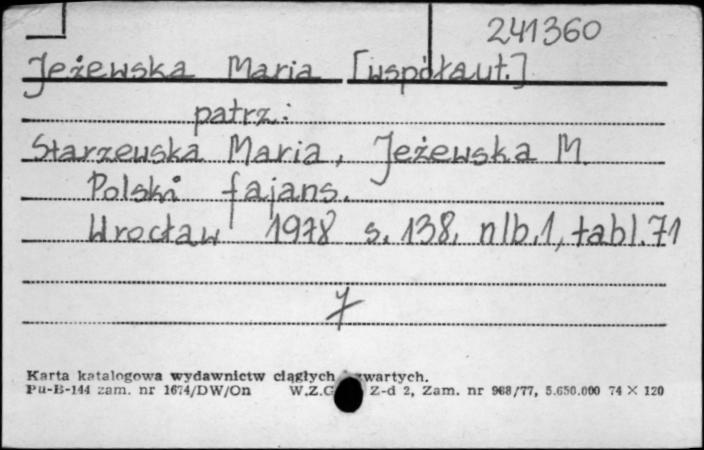 241360
Jeżewska Maria [współaut.]
patrz:
Starzewska Maria, Jeżewska M.
Polski fajans.
Wrocław 1978 s. 138, nlb. 1, tabl. 71
Karta katalogowa wydawnictw ciągłych zwartych.
Pu-B-144 zam. nr 1674/DW/On W.Z.G Z-d 2, Zam. nr 968/77, 5.650.000 74 × 120